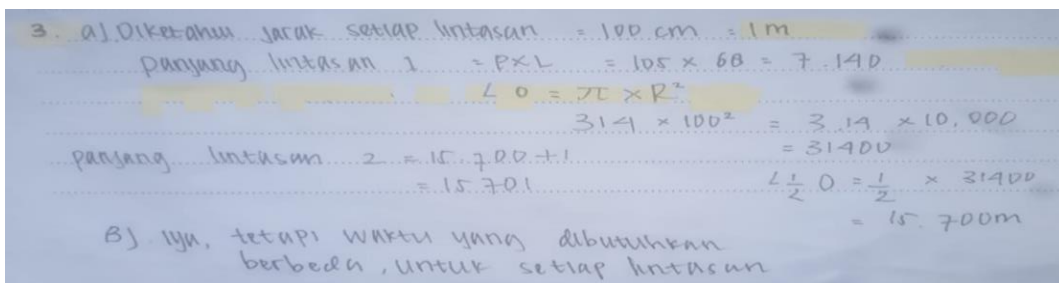 3. a) Diketahui jarak setiap lintasan = 100 cm = 1 m
Panjang lintasan 1 = P × L = 105 × 68 = 7.140
L O = π × R²
314 × 100² = 3,14 × 10.000
= 31400
panjang lintasan 2 = 15.700 + 1
= 15.701
L ½ O = ½ × 31400
= 15.700 m
B) Iya, tetapi waktu yang dibutuhkan
berbeda, untuk setiap lintasan